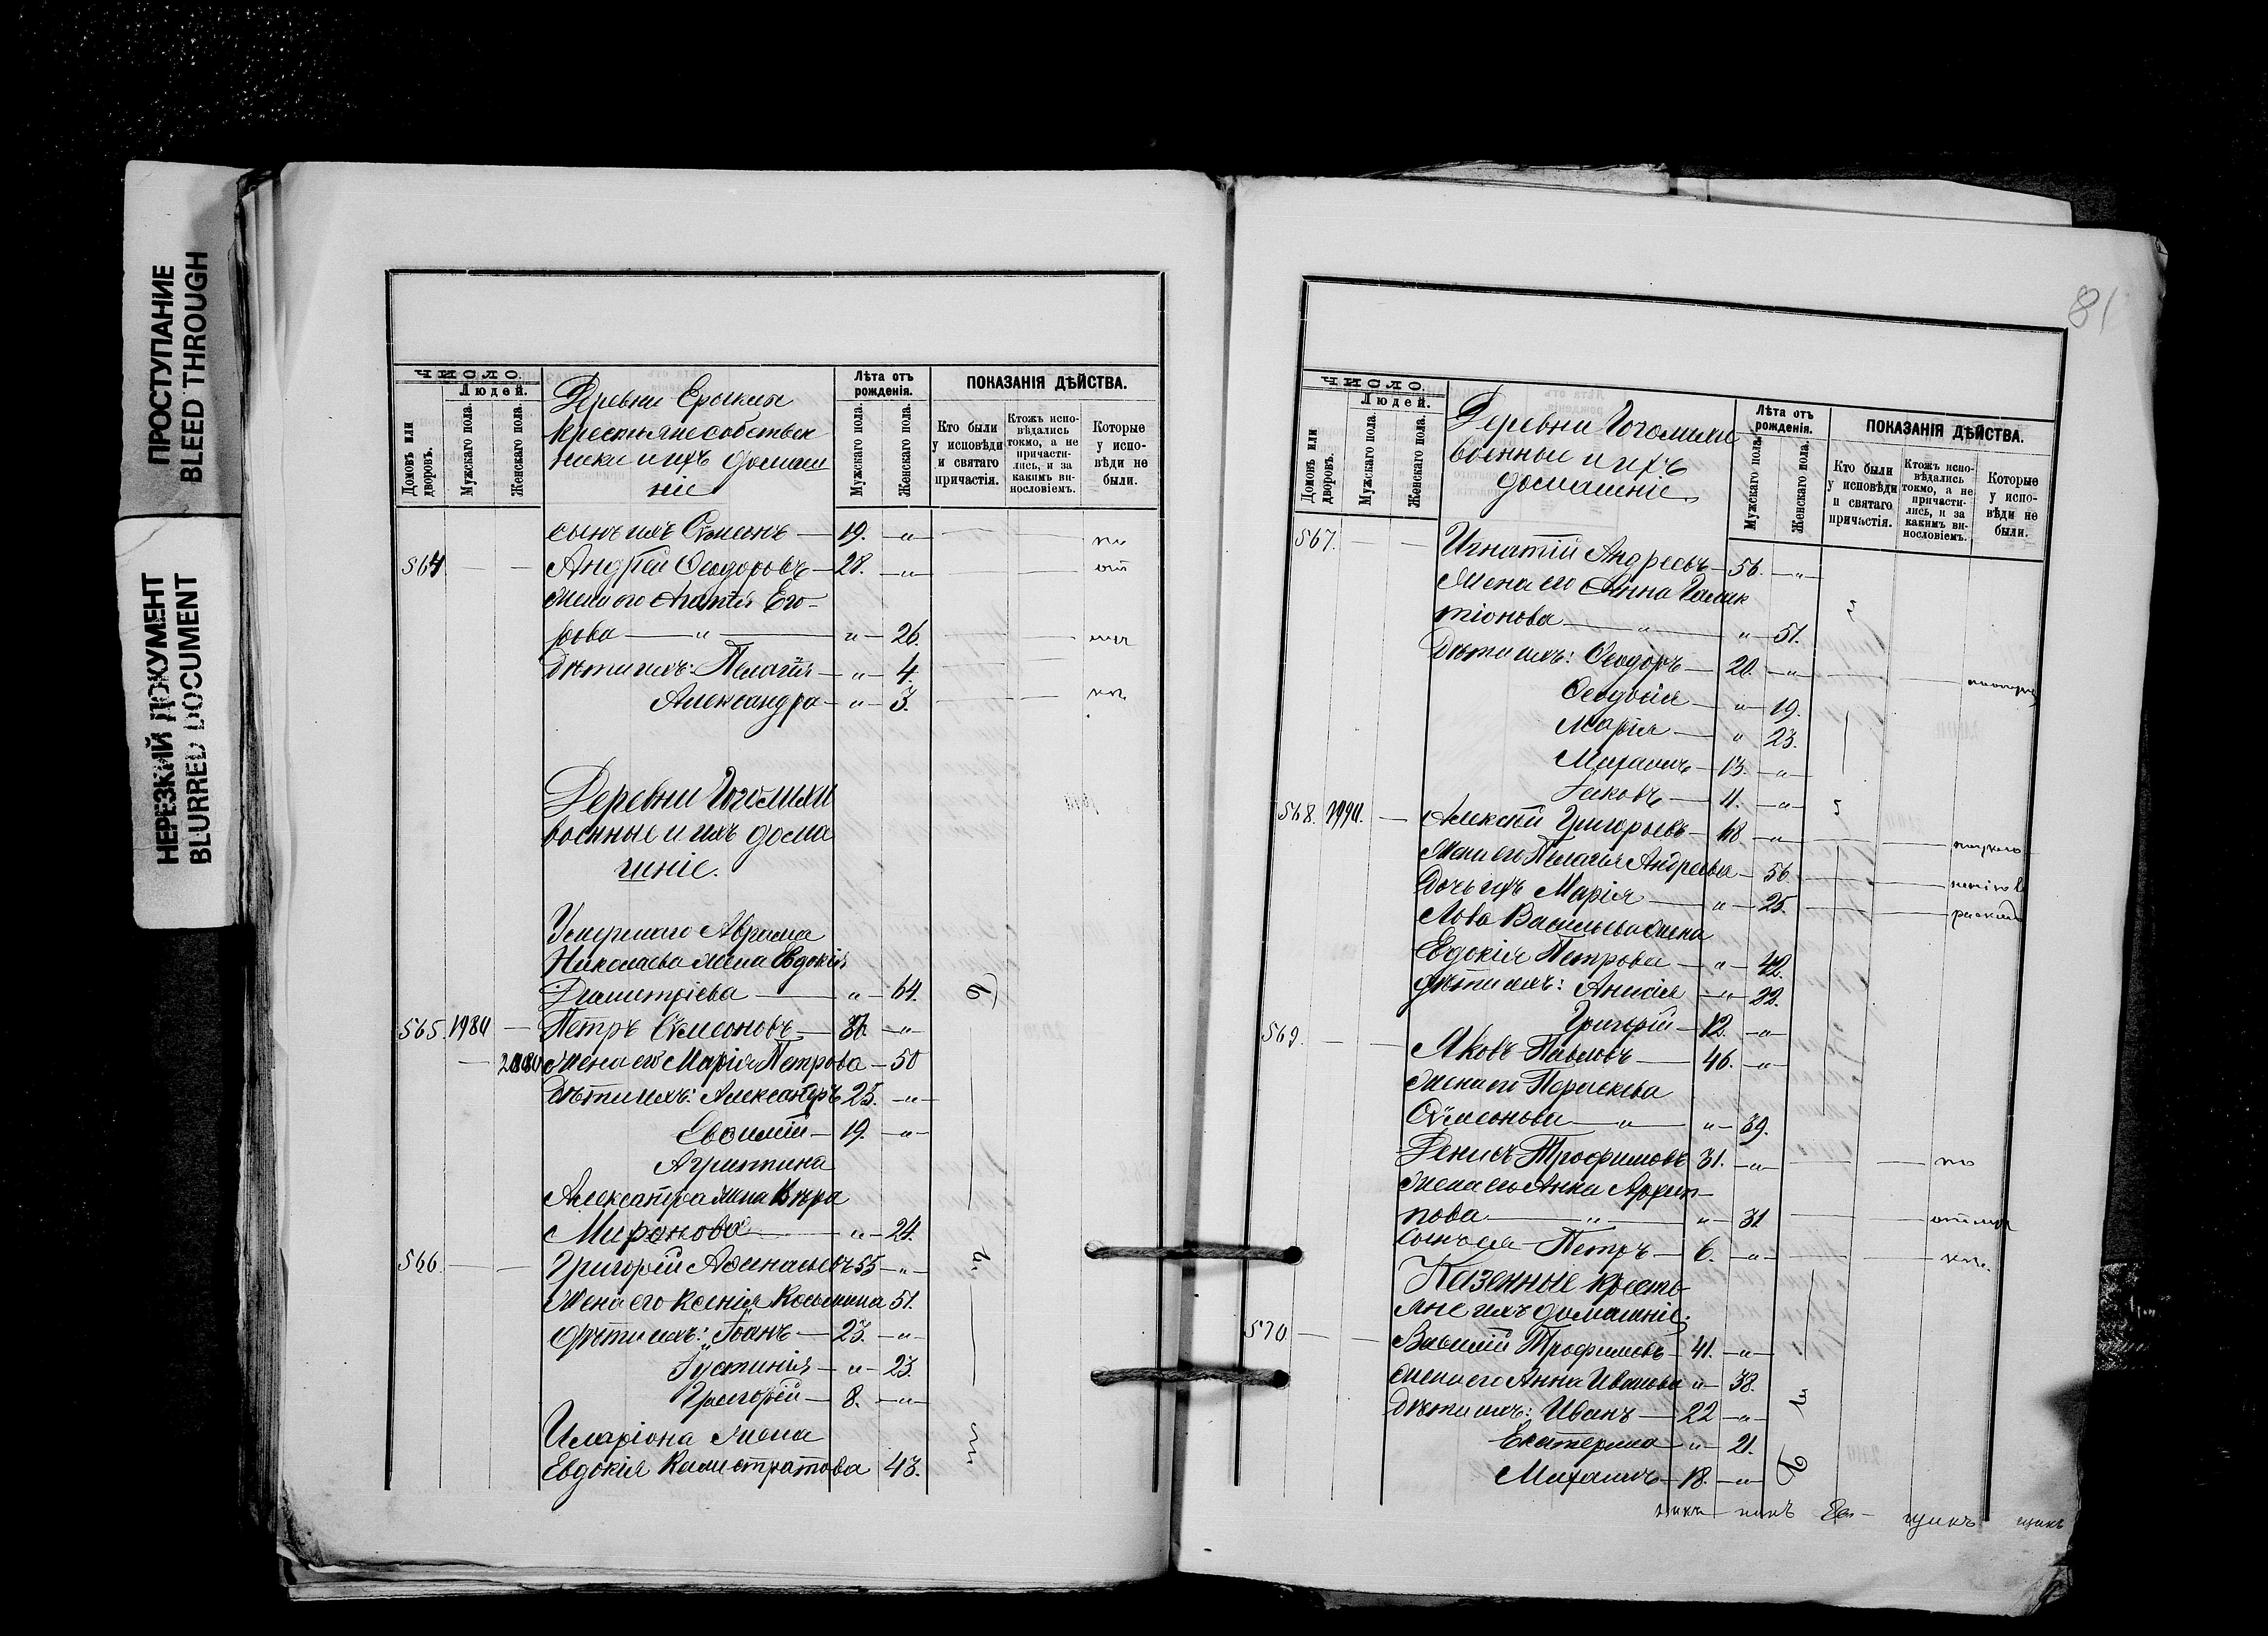 ПРОСТУПАНИЕ
BLEED THROUGH
НЕРЕЗКИЙ ДОКУМЕНТ
BLURRED DOCUMENT
ЧИСЛО.
Людей.
Домовъ или дворовъ.
Мужскаго пола.
Женскаго пола.
Деревни Ерыкин
крестьяне собствен
ники и ихъ домаш
ніе
Лѣта отъ рожденія.
Мужскаго пола.
Женскаго пола.
ПОКАЗАНІЯ ДѢЙСТВА.
Кто были у исповѣди и святаго причастія.
Ктожъ испо-вѣдались токмо, а не причасти-лись, и за какимъ ви-нословіемъ.
Которые у испо-вѣди не были.
сынъ ихъ Сѵмеонъ — 19. — „ —
564 — — Андрей Ѳеодоровъ — 28. — „ —
Жена его Агапія Его-
рова — „ — „ — 26.
Дѣти ихъ: Пелагія — „ — 4.
Александра — „ — 3.
Деревни Гоголихи
военные и ихъ дома
шніе.
Умершаго Аврама
Николаева жена Евдокія
Димитріева — „ — 64.
565. 1980 — Петръ Сѵмеоновъ — „ —
Жена его Марія Петрова — 50
Дѣти ихъ: Александръ 25. — „ —
Евѳимій — 19. — „ —
Агрипина
Александра жена Вѣра
Миронова — „ — 24.
566. — — Григорій Аѳанасьевъ 55 — „ —
Жена его Ксенія Косьмина 51.
Дѣти ихъ: Іоанъ — 23. — „ —
Іустинія — „ — 23.
Григорій — 8. — „ —
Иларіона жена
Евдокія Калистратова 43.
81
ЧИСЛО.
Людей.
Домовъ или дворовъ.
Мужскаго пола
Женскаго пола
Деревни Гоголихи
военные и ихъ
домашніе
Лѣта отъ рожденія.
Мужскаго пола.
Женскаго пола.
ПОКАЗАНІЯ ДѢЙСТВА.
Кто были у исповѣди и святаго причастія.
Ктожъ испо-вѣдались токмо, а не причасти-лись, и за какимъ ви-нословіемъ.
Которые у испо-вѣди не были.
567. — — Игнатій Андреевъ — 56. — „ —
Жена его Анна Галак
тіонова — „ — „ — 51.
Дѣти ихъ: Ѳеодоръ — 20. — „ —
Ѳеодосія — „ — 19.
Марія — „ 23.
Михаилъ — 13. — „ —
Іаковъ — 11. — „ —
568. — Алексій Григорьевъ — „ —
Жена его Пелагія Андреева — 56.
Дочь ихъ Марія — „ — 25.
Васильева жена
Евдокія Петрова — „ — 42.
дѣти ихъ: Анисія — „ — 22.
Григорій — 12. — „ —
569. — — Яковъ Павловъ — 46. — „ —
Жена его Параскева
Сѵмеонова — „ — „ — 39.
Денисъ Трофимовъ 31. — „ —
Жена его Анна Архип-
пова — „ — „ — 31
сынъ ея Петръ — 6. — „ —
Казенные кресть-
яне ихъ домашніе.
570 — — Василій Трофимовъ — 41. — „ —
жена его Анна Иванова „ — 38.
Дѣти ихъ: Иванъ — 22 — „ —
Екатерина — „ — 21.
Михаилъ — 18. — „ —